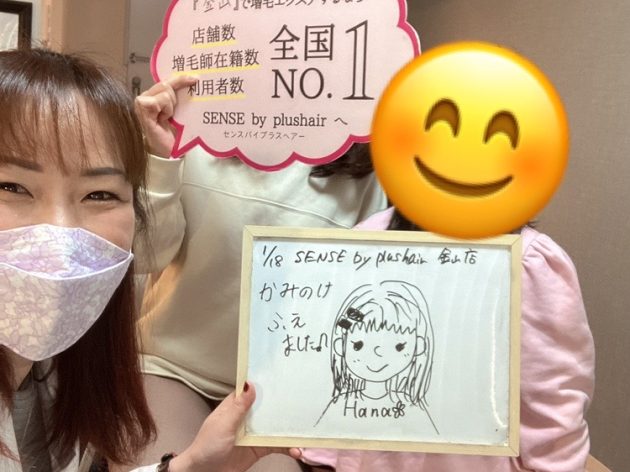 『金山』で増毛エクステするなら
店舗数
増毛師在籍数
利用者数
全国
NO.1
SENSE by plushair へ
センスバイプラスヘアー
1/18 SENSE by plushair 金山店
かみのけ
ふえ
ました♪
Hana